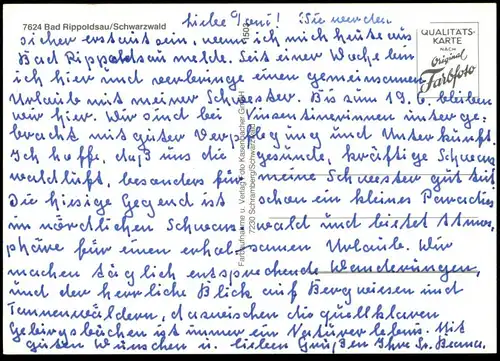 7624 Bad Rippoldsau/Schwarzwald
QUALITÄTS-
KARTE
NACH
Original
Farbfoto
Farbaufnahme u. Verlag: Foto Kasenbacher GmbH
7230 Schramberg/Schwarzwald
Liebe Toni! Sie werden
sicher erstaunt sein, wenn ich mich heute aus
Bad Rippoldsau melde. Seit einer Woche bin
ich hier und verbringe einen gemeinsamen
Urlaub mit meiner Schwester. Bis zum 19.6. bleiben
wir hier. Wir sind bei Vinzentinerinnen unterge-
bracht mit guter Verpflegung und Unterkunft.
Ich hoffe, daß uns die gesunde, kräftige Schwarz-
waldluft, besonders für meine Schwester gut tut.
Die hiesige Gegend ist schon ein kleines Paradies
im nördlichen Schwarzwald und bietet Atmos-
phäre für einen erholsamen Urlaub. Wir
machen täglich entsprechende Wanderungen,
und der herrliche Blick auf Bergwiesen und
Tannenwäldern, dazwischen die quellklaren
Gebirgsbächen ist immer ein Naturerlebnis. Mit
guten Wünschen u. lieben Grüßen Ihre Sr.